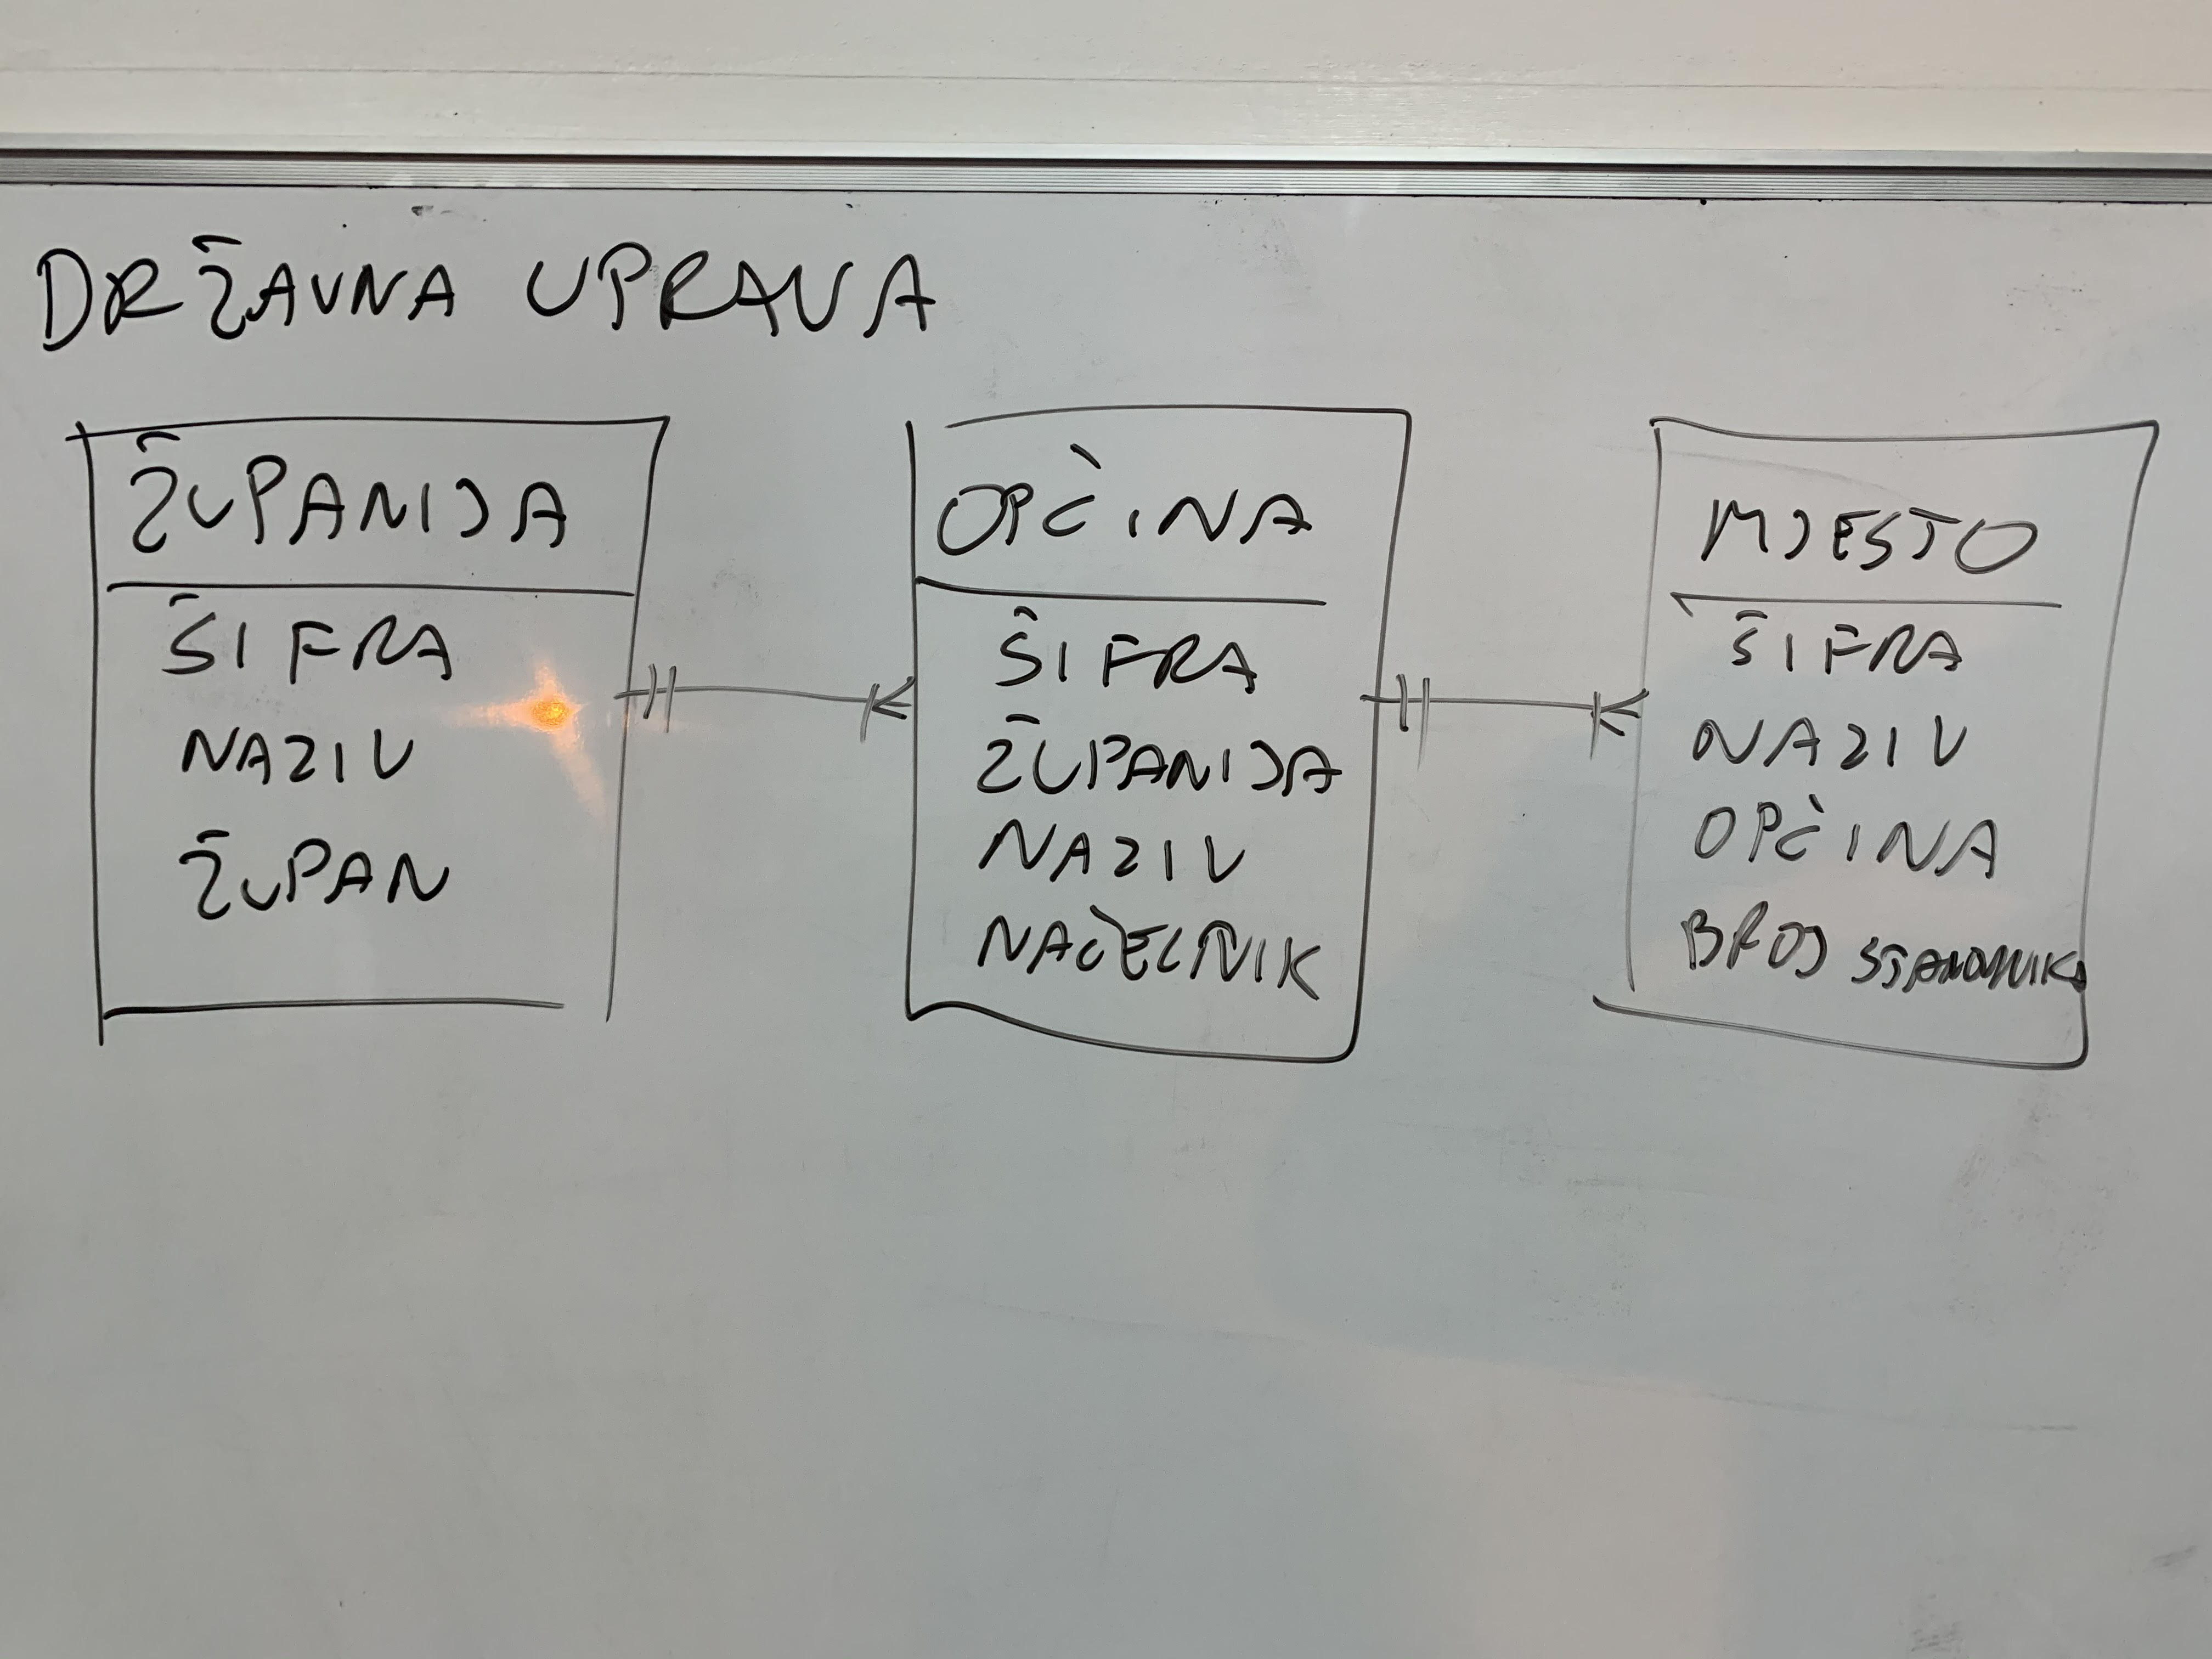 DRŽAVNA UPRAVA
ŽUPANIJA
ŠIFRA
NAZIV
ŽUPAN
OPĆINA
ŠIFRA
ŽUPANIJA
NAZIV
NAČELNIK
MJESTO
ŠIFRA
NAZIV
OPĆINA
BROJ STANOVNIKA